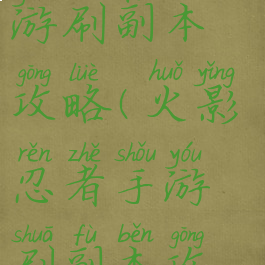 游刷副本
gōng lüè huǒ yǐng
攻略(火影
rěn zhě shǒu yóu
忍者手游
shuā fù běn gōng
刷副本攻